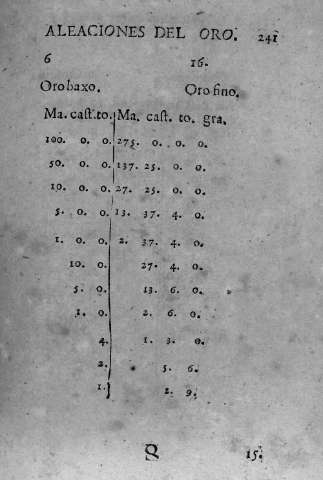 ALEACIONES DEL ORO. 241
6 16.
Oro baxo. Oro fino.
Ma. cast. to. Ma. cast. to. gra.
100. 0. 0. 275. 0. 0. 0.
50. 0. 0. 137. 25. 0. 0.
10. 0. 0. 27. 25. 0. 0.
5. 0. 0. 13. 37. 4. 0.
1. 0. 0. 2. 37. 4. 0.
10. 0. 27. 4. 0.
5. 0. 13. 6. 0.
1. 0. 2. 6. 0.
4. 1. 3. 0.
2. 5. 6.
1. 2. 9.
Q 15.